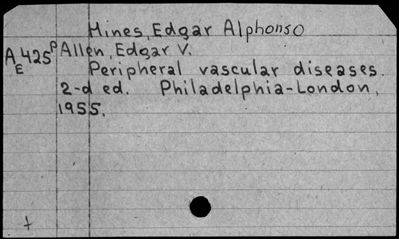 Hines, Edgar Alphonso
AE425p Allen, Edgar V.
Peripheral vascular diseases.
2-d ed. Philadelphia-London,
1955.